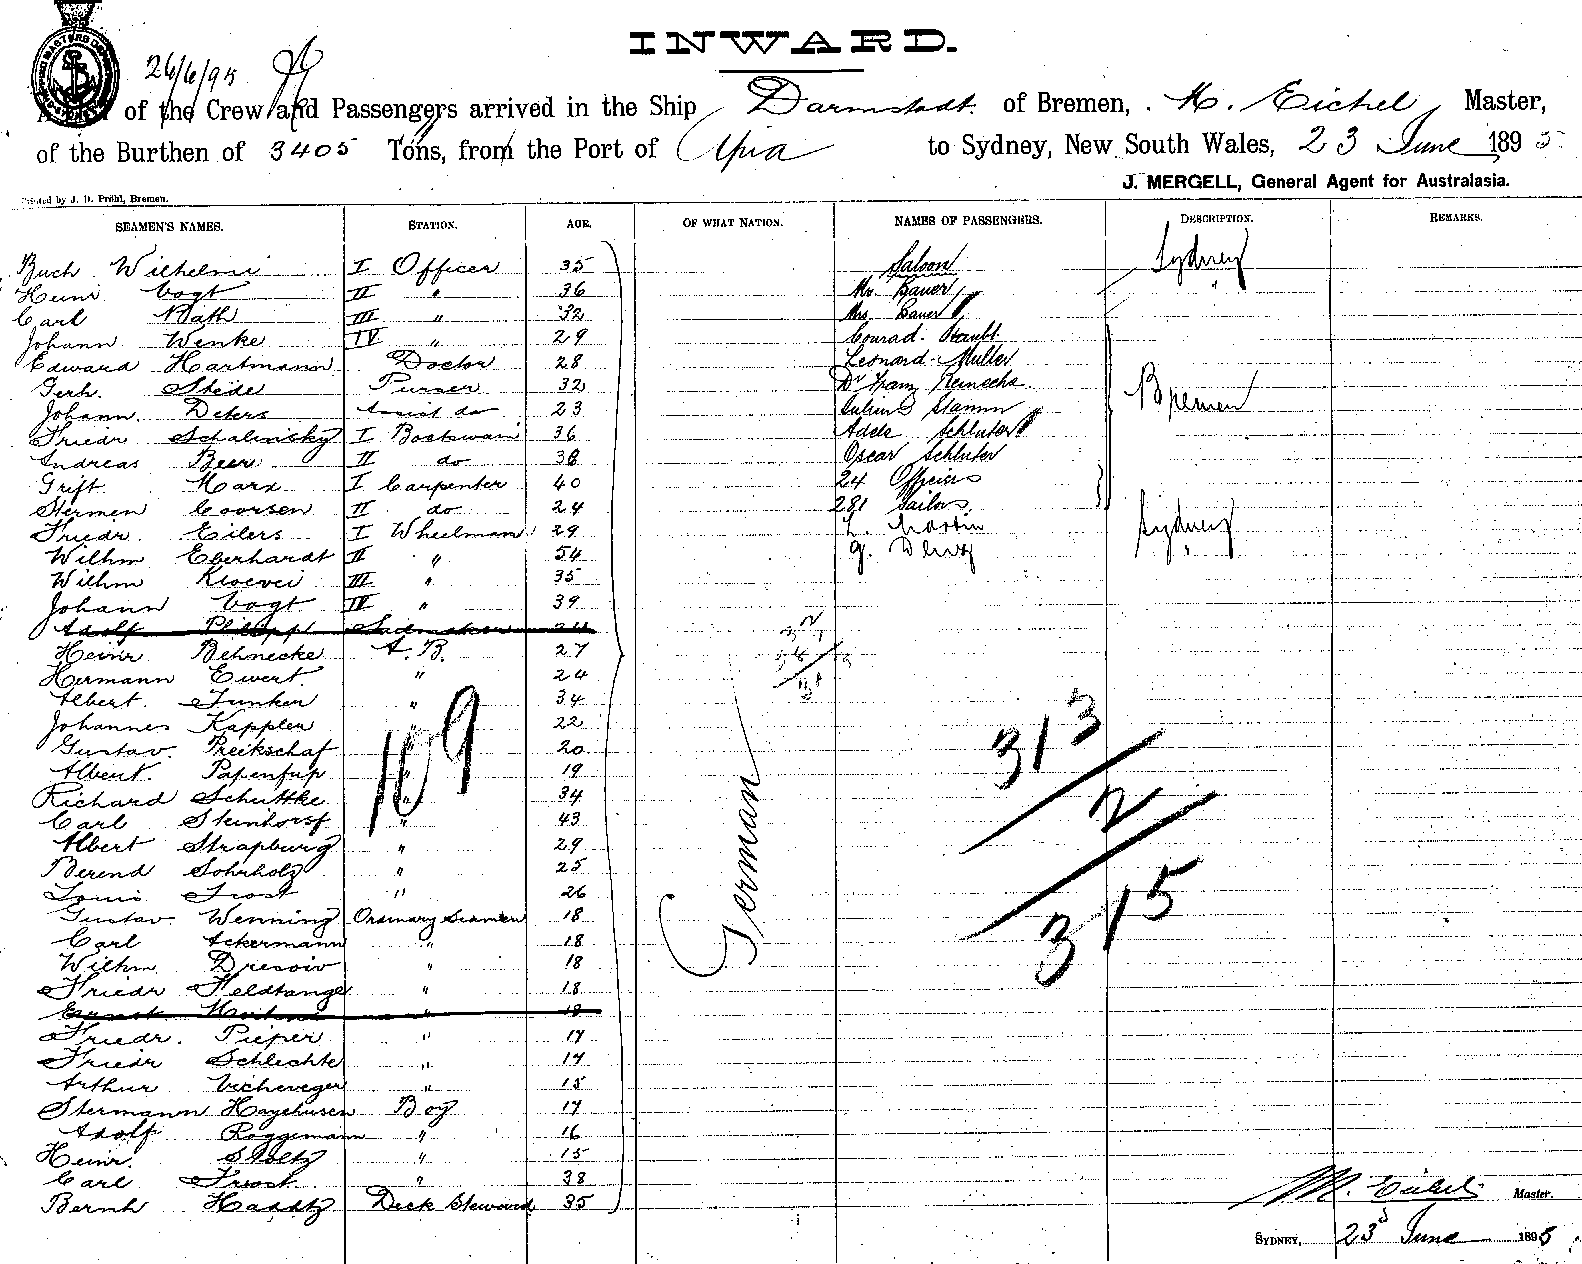 INWARD.
26/6/95
of the Crew and Passengers arrived in the Ship Darmstadt of Bremen, H. Eichel Master,
of the Burthen of 3405 Tons, from the Port of Apia to Sydney, New South Wales, 23 June 1895
J. MERGELL, General Agent for Australasia.
Printed by J. D. Pröhl, Bremen.
SEAMEN'S NAMES. STATION. AGE. OF WHAT NATION. NAMES OF PASSENGERS. DESCRIPTION. REMARKS.
Buch Wilhelmi I Officer 35 Saloon Sydney
Heinr Vogt II " 36 Mr. Bauer "
Carl Rath III " 32 Mrs Bauer
Johann Wenke IV " 29 Conrad Staubt
Edward Hartmann Doctor 28 Leonard Muller
Gerh. Steide Purser 32 Dr Franz Reinecke Bremen
Johann Deters Assist do 23 Julius Stamm
Friedr Schalinsky I Boatswain 36 Adele Schluter
Andreas Beer II do 38 Oscar Schluter
Grift Marx I Carpenter 40 24 Officers
Hermen Coorsen II do 24 281 Sailors
Friedr. Eilers I Wheelman 29 L. Martin Sydney
Wilhm Eberhardt II " 54 G. "
Wilhm III " 35
Johann Vogt IV " 39
Adolf Philippi
Heinr Behnecke A.B. 27
Hermann Ewert " 24
Albert Junker " 34
Johannes Kappler " 22
Gustav Preikschaf " 20
Albert Papenfup " 19
Richard Schuttke " 34
Carl Steinhorst " 43
Albert Strapburg " 29
Berend Sohrholz " 25
Louis Trost " 26
Gustav Wenning Ordinary Seamen 18
Carl Ackermann " 18
Wilhm " 18
Friedr Feldtange " 18
Ernst
Friedr. Pieper " 17
Friedr Schlechte " 17
Arthur " 15
Hermann Hagehusen Boy 17
Adolf Roggemann " 16
Heinr. Stoltz " 15
Carl Trost " 38
Bernh Deck Steward 35
German
109
313
2
315
H. Eichel Master.
SYDNEY, 23d June 1895